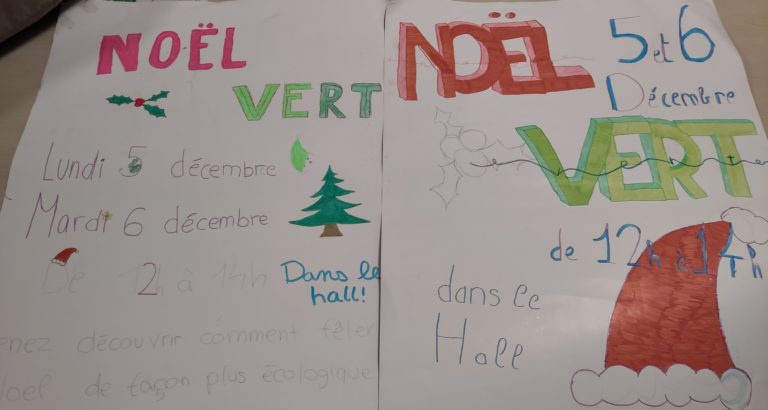 NOËL
VERT
Lundi 5 décembre
Mardi 6 décembre
De 12h à 14h
Dans le
hall!
enez découvrir comment fêter
Noel de façon plus écologique
NOËL
5 et 6
Décembre
VERT
de 12h à 14h
dans le
Hall